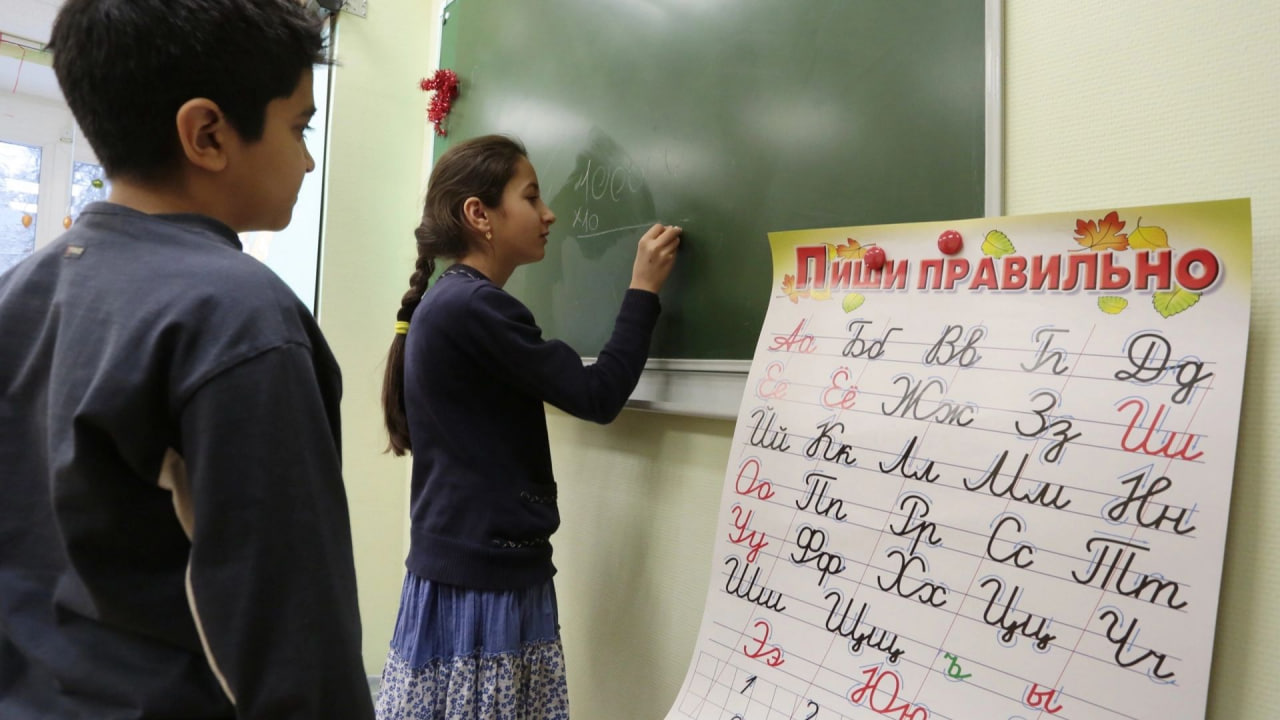 х10
Пиши правильно
Аа Бб Вв Гг Дд
Ее Ёё Жж Зз Ии
Йй Кк Лл Мм Нн
Оо Пп Рр Сс Тт
Уу Фф Хх Цц Чч
Шш Щщ ъ ы
Ээ Юю
1 2